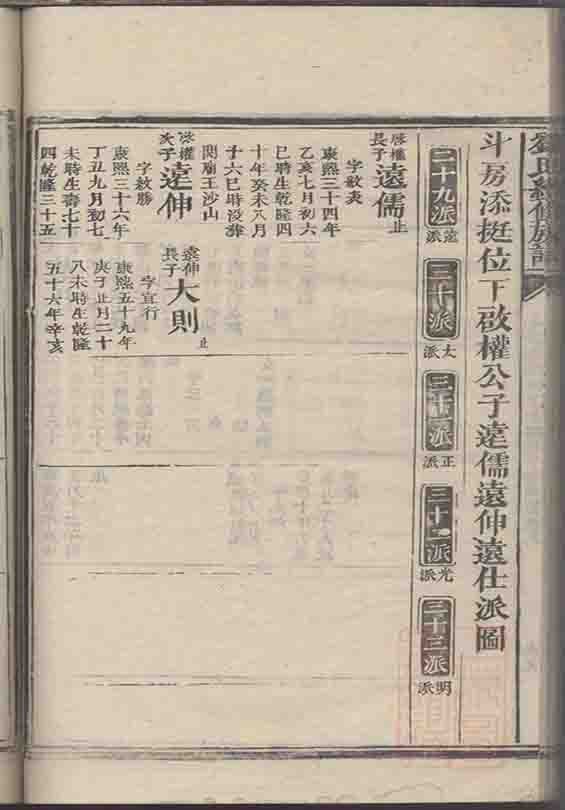 氏續修族譜
斗房添挺位下啟權公子遠儒遠伸遠仕派圖
二十九派
遠派
三十派
大派
三十一派
正派
三十二派
光派
三十三派
明派
啓權長子遠儒止
字敘表
康熙三十四年
乙亥七月初六
巳時生乾隆四
十年癸未八月
十六巳時没葬
閔廟王沙山
啓權次子遠伸
字敘勝
康熙三十六年
丁丑九月初七
未時生壽七十
四乾隆三十五
遠伸長子大則止
字宜行
康熙五十九年
庚子正月二十
八未時生乾隆
五十六年辛亥